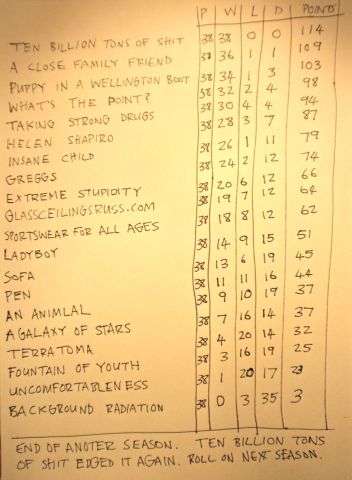 P W L D POINTS
TEN BILLION TONS OF SHIT 38 38 0 0 114
A CLOSE FAMILY FRIEND 38 36 1 1 109
PUPPY IN A WELLINGTON BOOT 38 34 1 3 103
WHAT'S THE POINT? 38 32 2 4 98
TAKING STRONG DRUGS 38 30 4 4 94
HELEN SHAPIRO 38 28 3 7 87
INSANE CHILD 38 26 1 11 79
GREGGS 38 24 2 12 74
EXTREME STUPIDITY 38 20 6 12 66
GLASSCEILINGSRUSS.COM 38 19 7 12 64
SPORTSWEAR FOR ALL AGES 38 18 8 12 62
LADYBOY 38 14 9 15 51
SOFA 38 13 6 19 45
PEN 38 11 11 16 44
AN ANIMLAL 38 9 10 19 37
A GALAXY OF STARS 38 7 16 14 37
TERRATOMA 38 4 20 14 32
FOUNTAIN OF YOUTH 38 3 16 19 25
UNCOMFORTABLENESS 38 1 20 17 23
BACKGROUND RADIATION 38 0 3 35 3
END OF ANOTER SEASON. TEN BILLION TONS
OF SHIT EDGED IT AGAIN. ROLL ON NEXT SEASON.